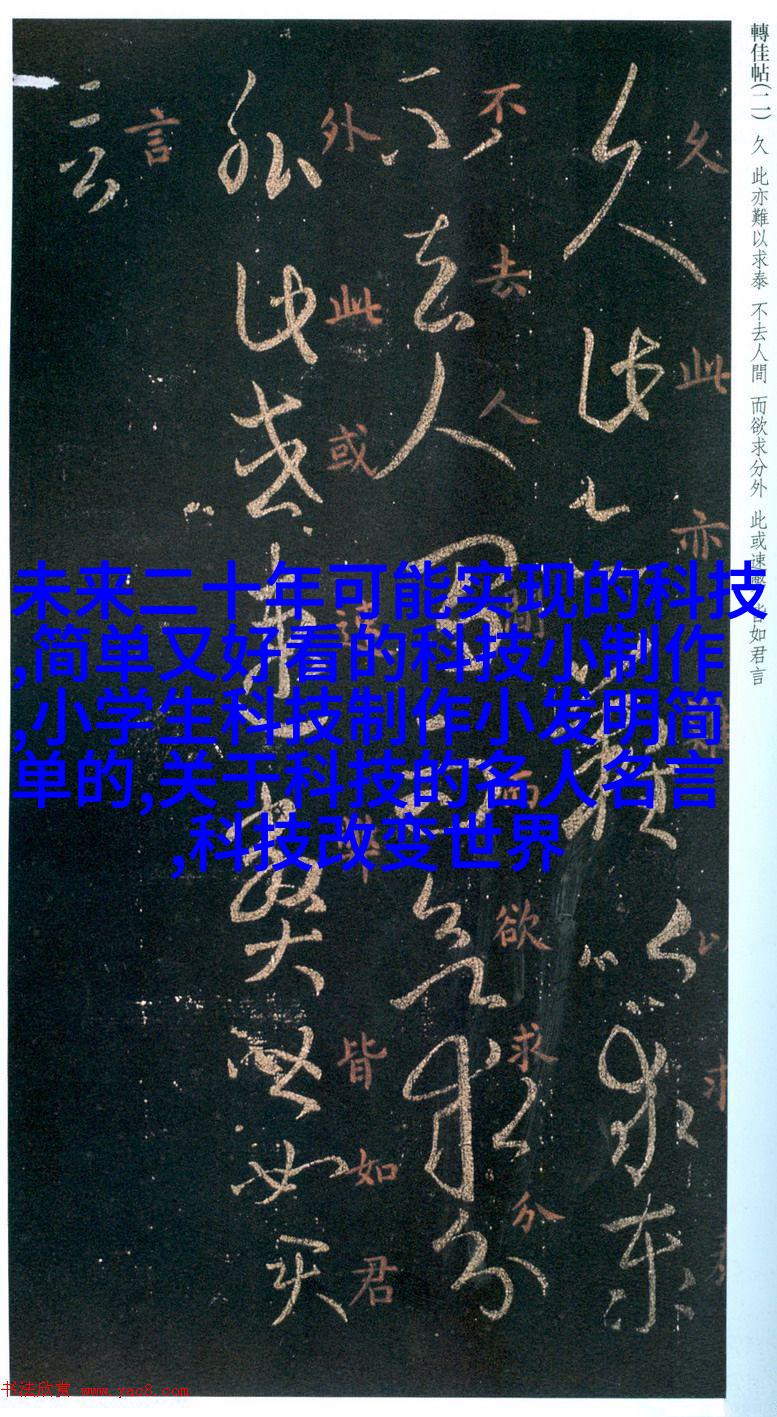 轉佳帖(二) 久 此亦難以求泰 不去人間 而欲求分外 此或速 皆如君言
久此亦難以求
不去人間而欲求分
外此或速弊皆如君
言
未来二十年可能实现的科技
,简单又好看的科技小制作
,小学生科技制作小发明简
单的,关于科技的名人名言
,科技改变世界
书法欣赏 www.yac8.com